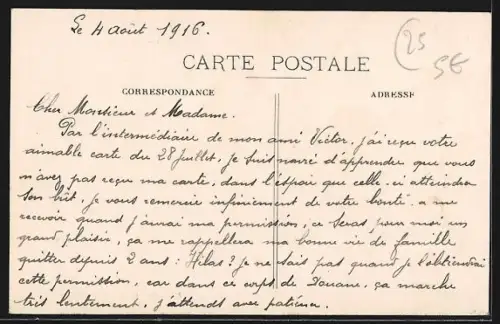 Le 4 Août 1916.
25
5€
CARTE POSTALE
CORRESPONDANCE
ADRESSE
Cher Monsieur et Madame.
Par l'intermédiaire de mon ami Victor, j'ai reçu votre
aimable carte du 28 Juillet, je suis navré d'apprendre que vous
n'avez pas reçu ma carte, dans l'espoir que celle-ci atteindra
son bût, je vous remercie infiniment de votre bonté a me
recevoir quand j'aurai ma permission, ce seras pour moi un
grand plaisir, ça me rappellera ma bonne vie de famille
quitter depuis 2 ans : Hélas ? je ne sais pas quand je l'obtiendrai
cette permission, car dans ce corps de Douane, ça marche
très lentement, j'attends avec patience.